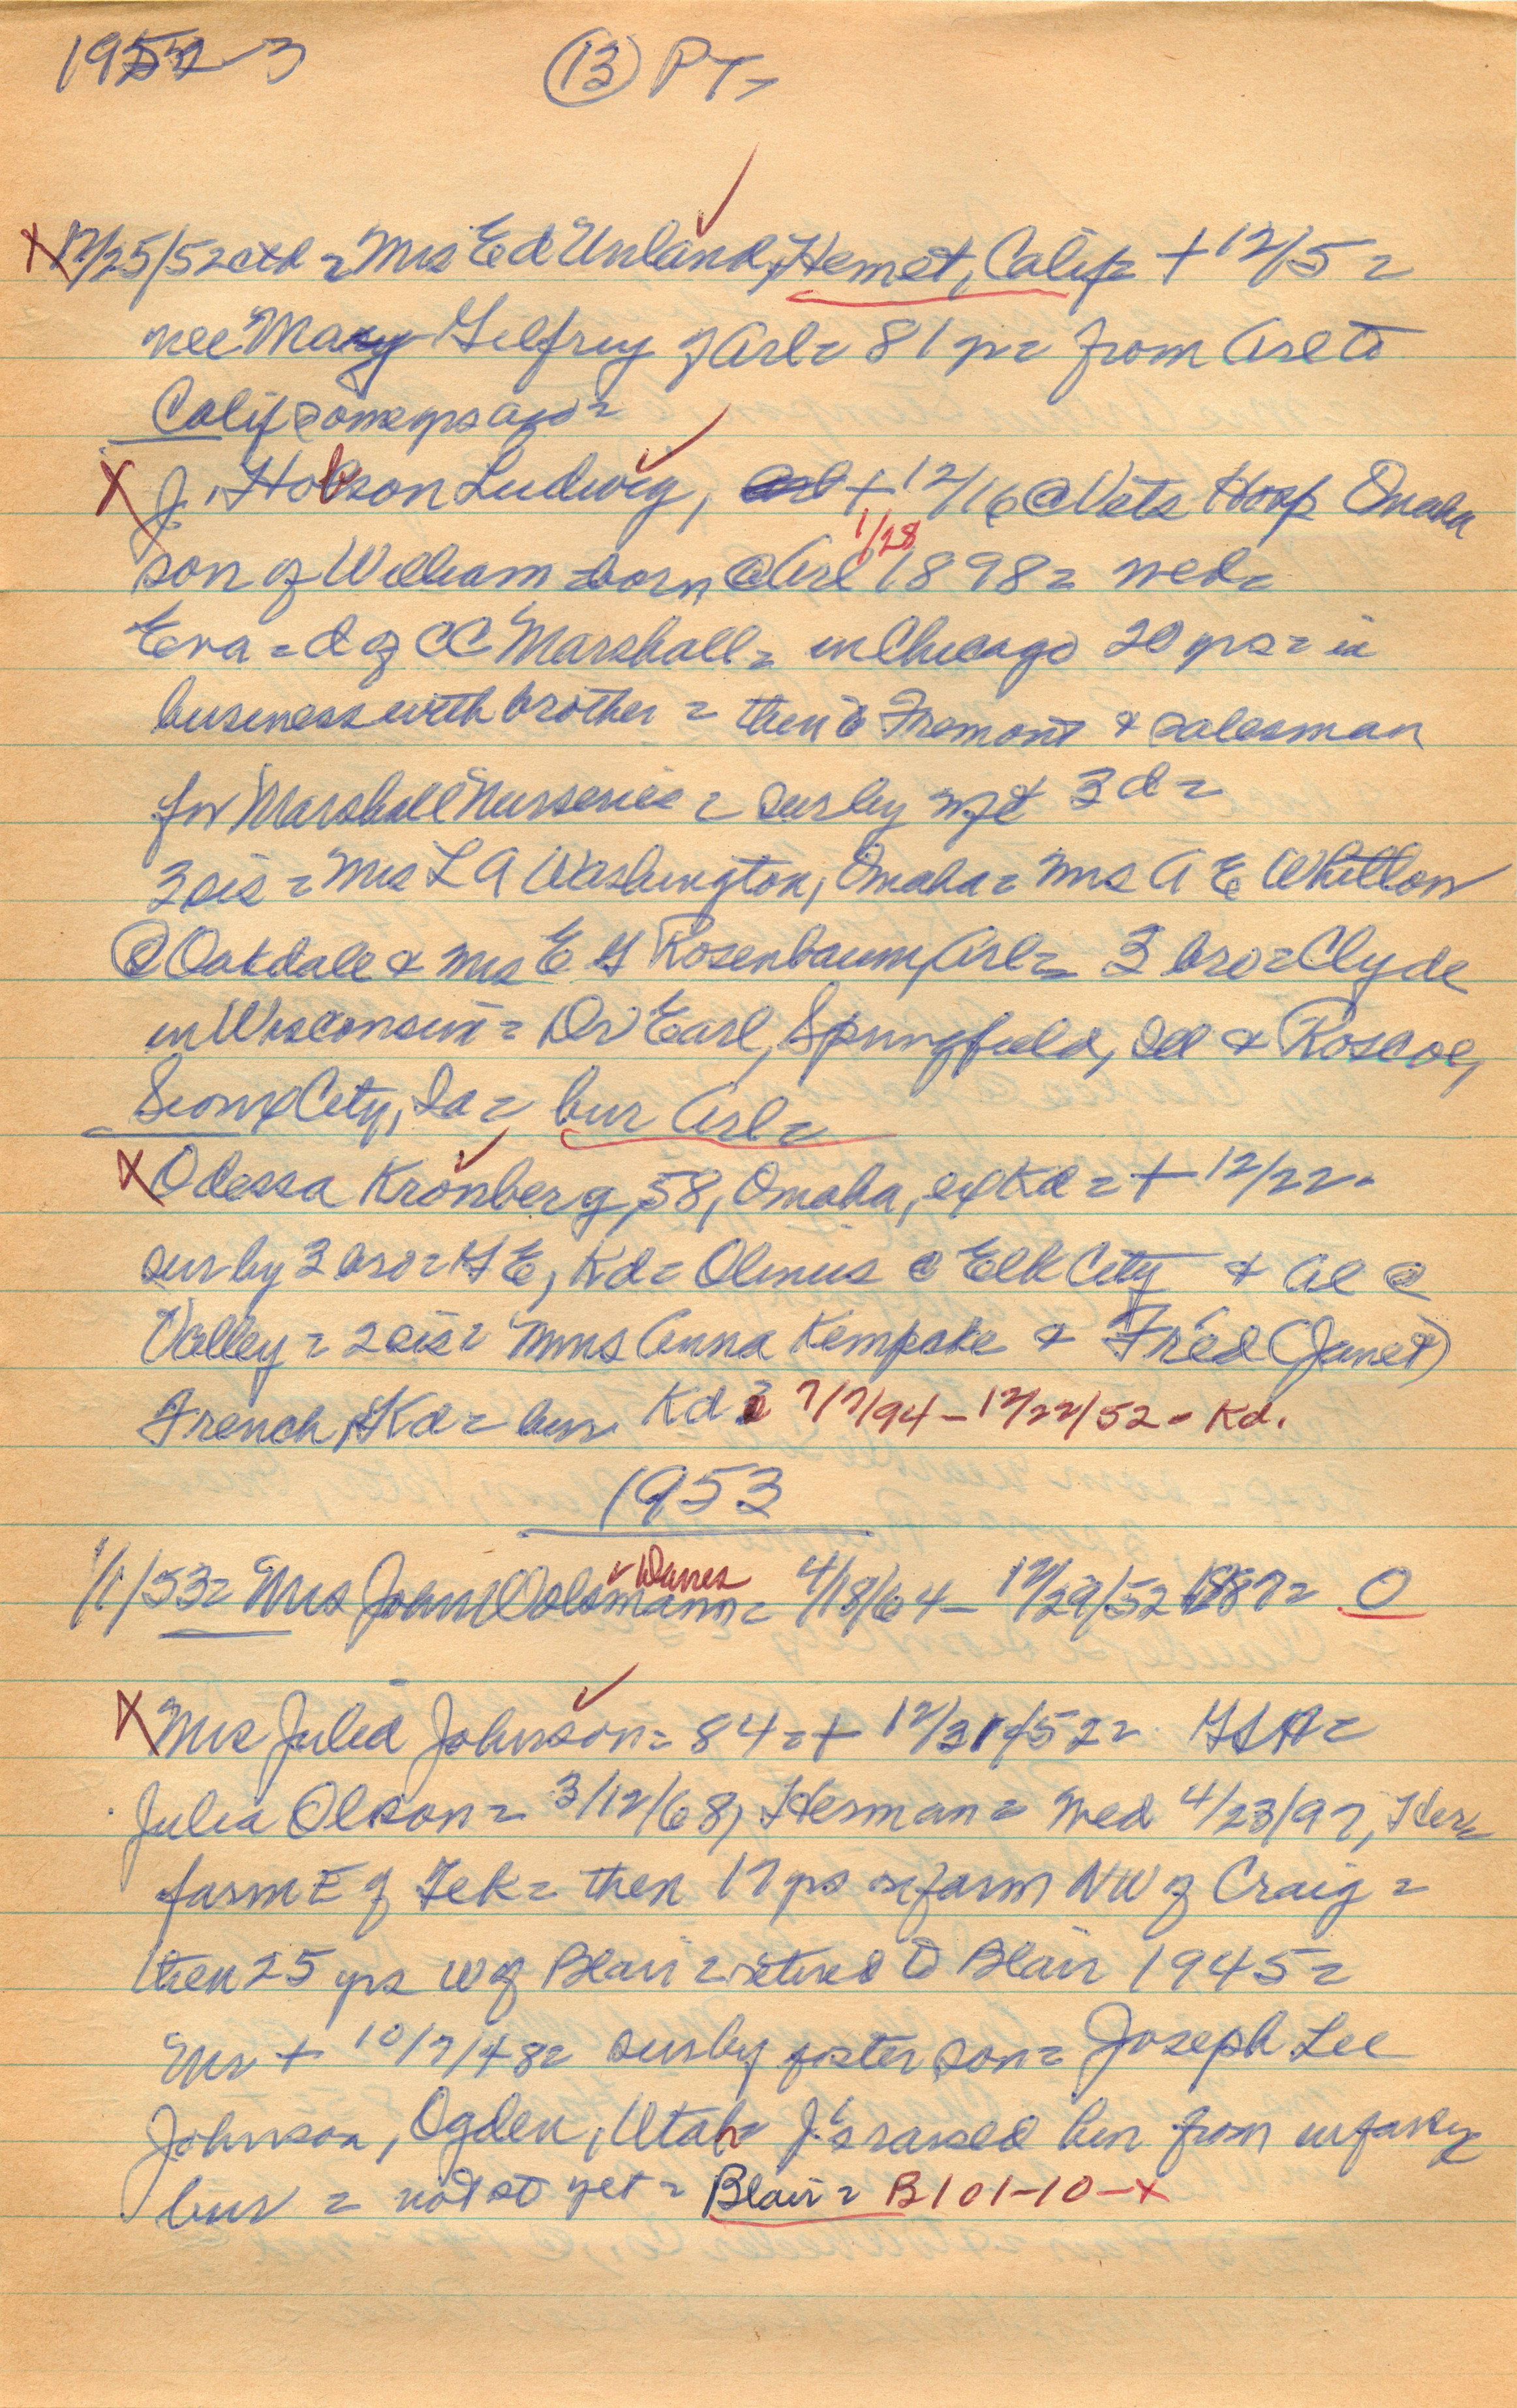 1952-3 (13) PT=
X 12/25/52 ctd = Mrs Ed Unland, Hemet, Calif = + 12/5 =
nee Mary Gilfrey of Arl = 81 yr = from Arl to
Calif some yrs ago =
X J. Hobson Ludwig, + 12/16 @ Vets Hosp Omaha
1/28
son of William = born @ Arl 1898 = wed =
Eva = d of CC Marshall = in Chicago 20 yrs = in
business with brother = then to Fremont & salesman
for Marshall Nurseries = sur by wf & 3 d =
3 sis = Mrs L A Washington, Omaha = Mrs A E Whitlow
@ Oakdale & Mrs E G Rosenbaum, Arl = 3 bro = Clyde
in Wisconsin = Dr Earl, Springfield, Ill & Roscoe,
Sioux City, Ia = bur Arl =
X Odessa Kronberg, 58, Omaha, ex Kd = + 12/22 =
sur by 3 bro = H E, Kd = Olinus @ Elk City & Al @
Valley = 2 sis = Mmes Anna Kempske & Fred (Janet)
French, Kd = bur Kd 7/7/94 - 12/22/52 - Kd.
1953
1/1/53 = Mrs John Wolsmann = 4/18/64 - 12/29/52 1887 = O
X Mrs Julia Johnson = 84 = + 12/31/52 =
Julia Olson = 3/12/68, Herman = wed 4/23/97, Her =
farm E of Tek = then 17 yrs on farm NW of Craig =
then 25 yrs W of Blair = retired to Blair 1945 =
Mr + 10/7/48 = sur by foster son = Joseph Lee
Johnson, Ogden, Utah = J's raised him from infancy
bur = not st yet = Blair = B101-10-X